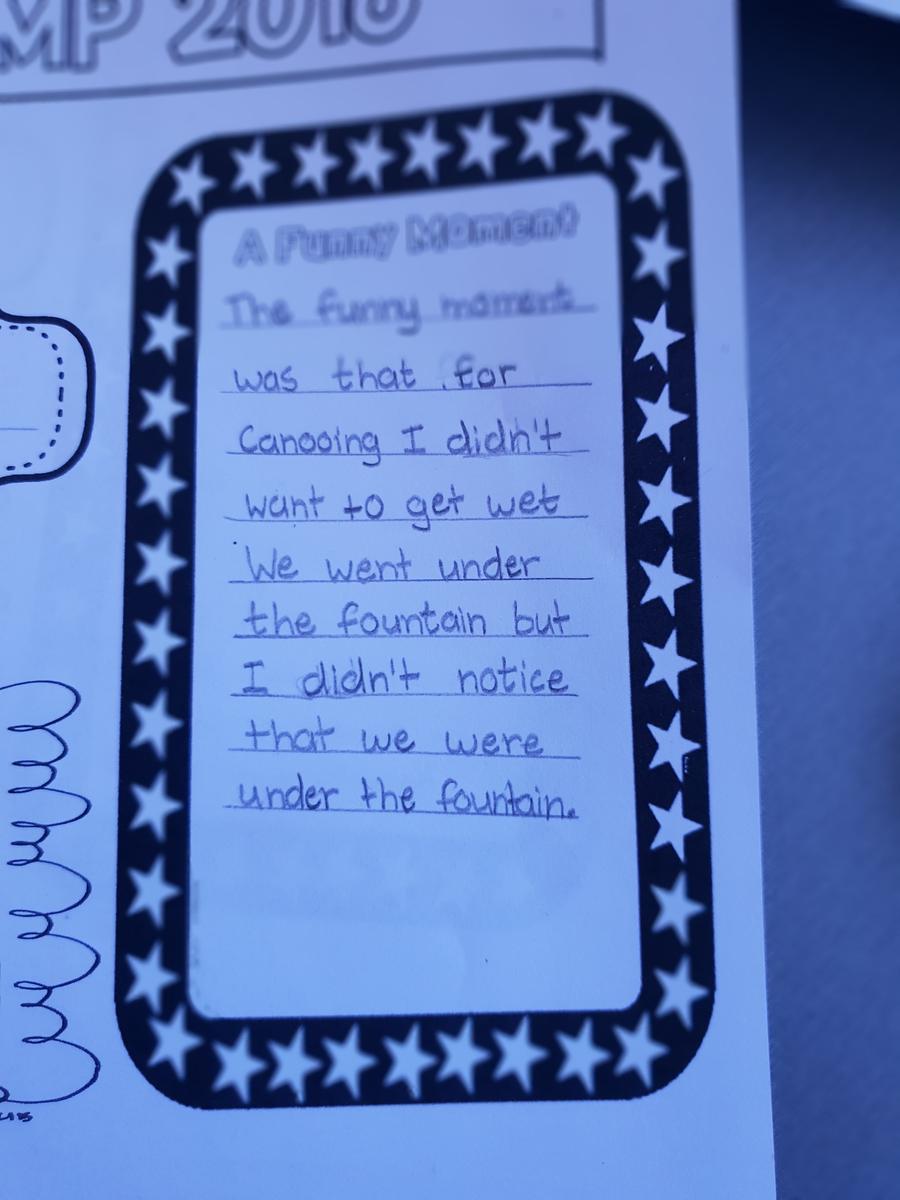 MP 2016
A Funny Moment
The funny moment
was that for
Canooing I didn't
want to get wet
We went under
the fountain but
I didn't notice
that we were
under the fountain.